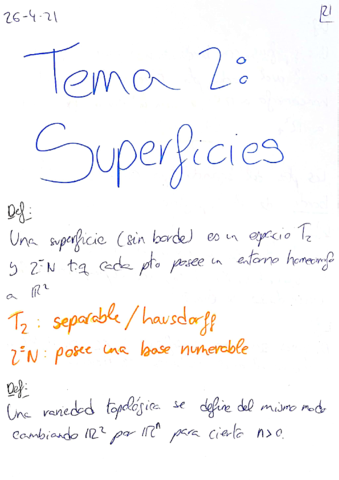 26-4-21
21
Tema 2:
Superficies
Def:
Una superficie (sin borde) es un espacio T₂
y 2ºN t.q cada pto posee un entorno homeomorfo
a ℝ²
T₂: separable/hausdorff
2ºN: posee una base numerable
Def:
Una variedad topológica se define del mismo modo
cambiando ℝ² por ℝⁿ para cierto n>0.